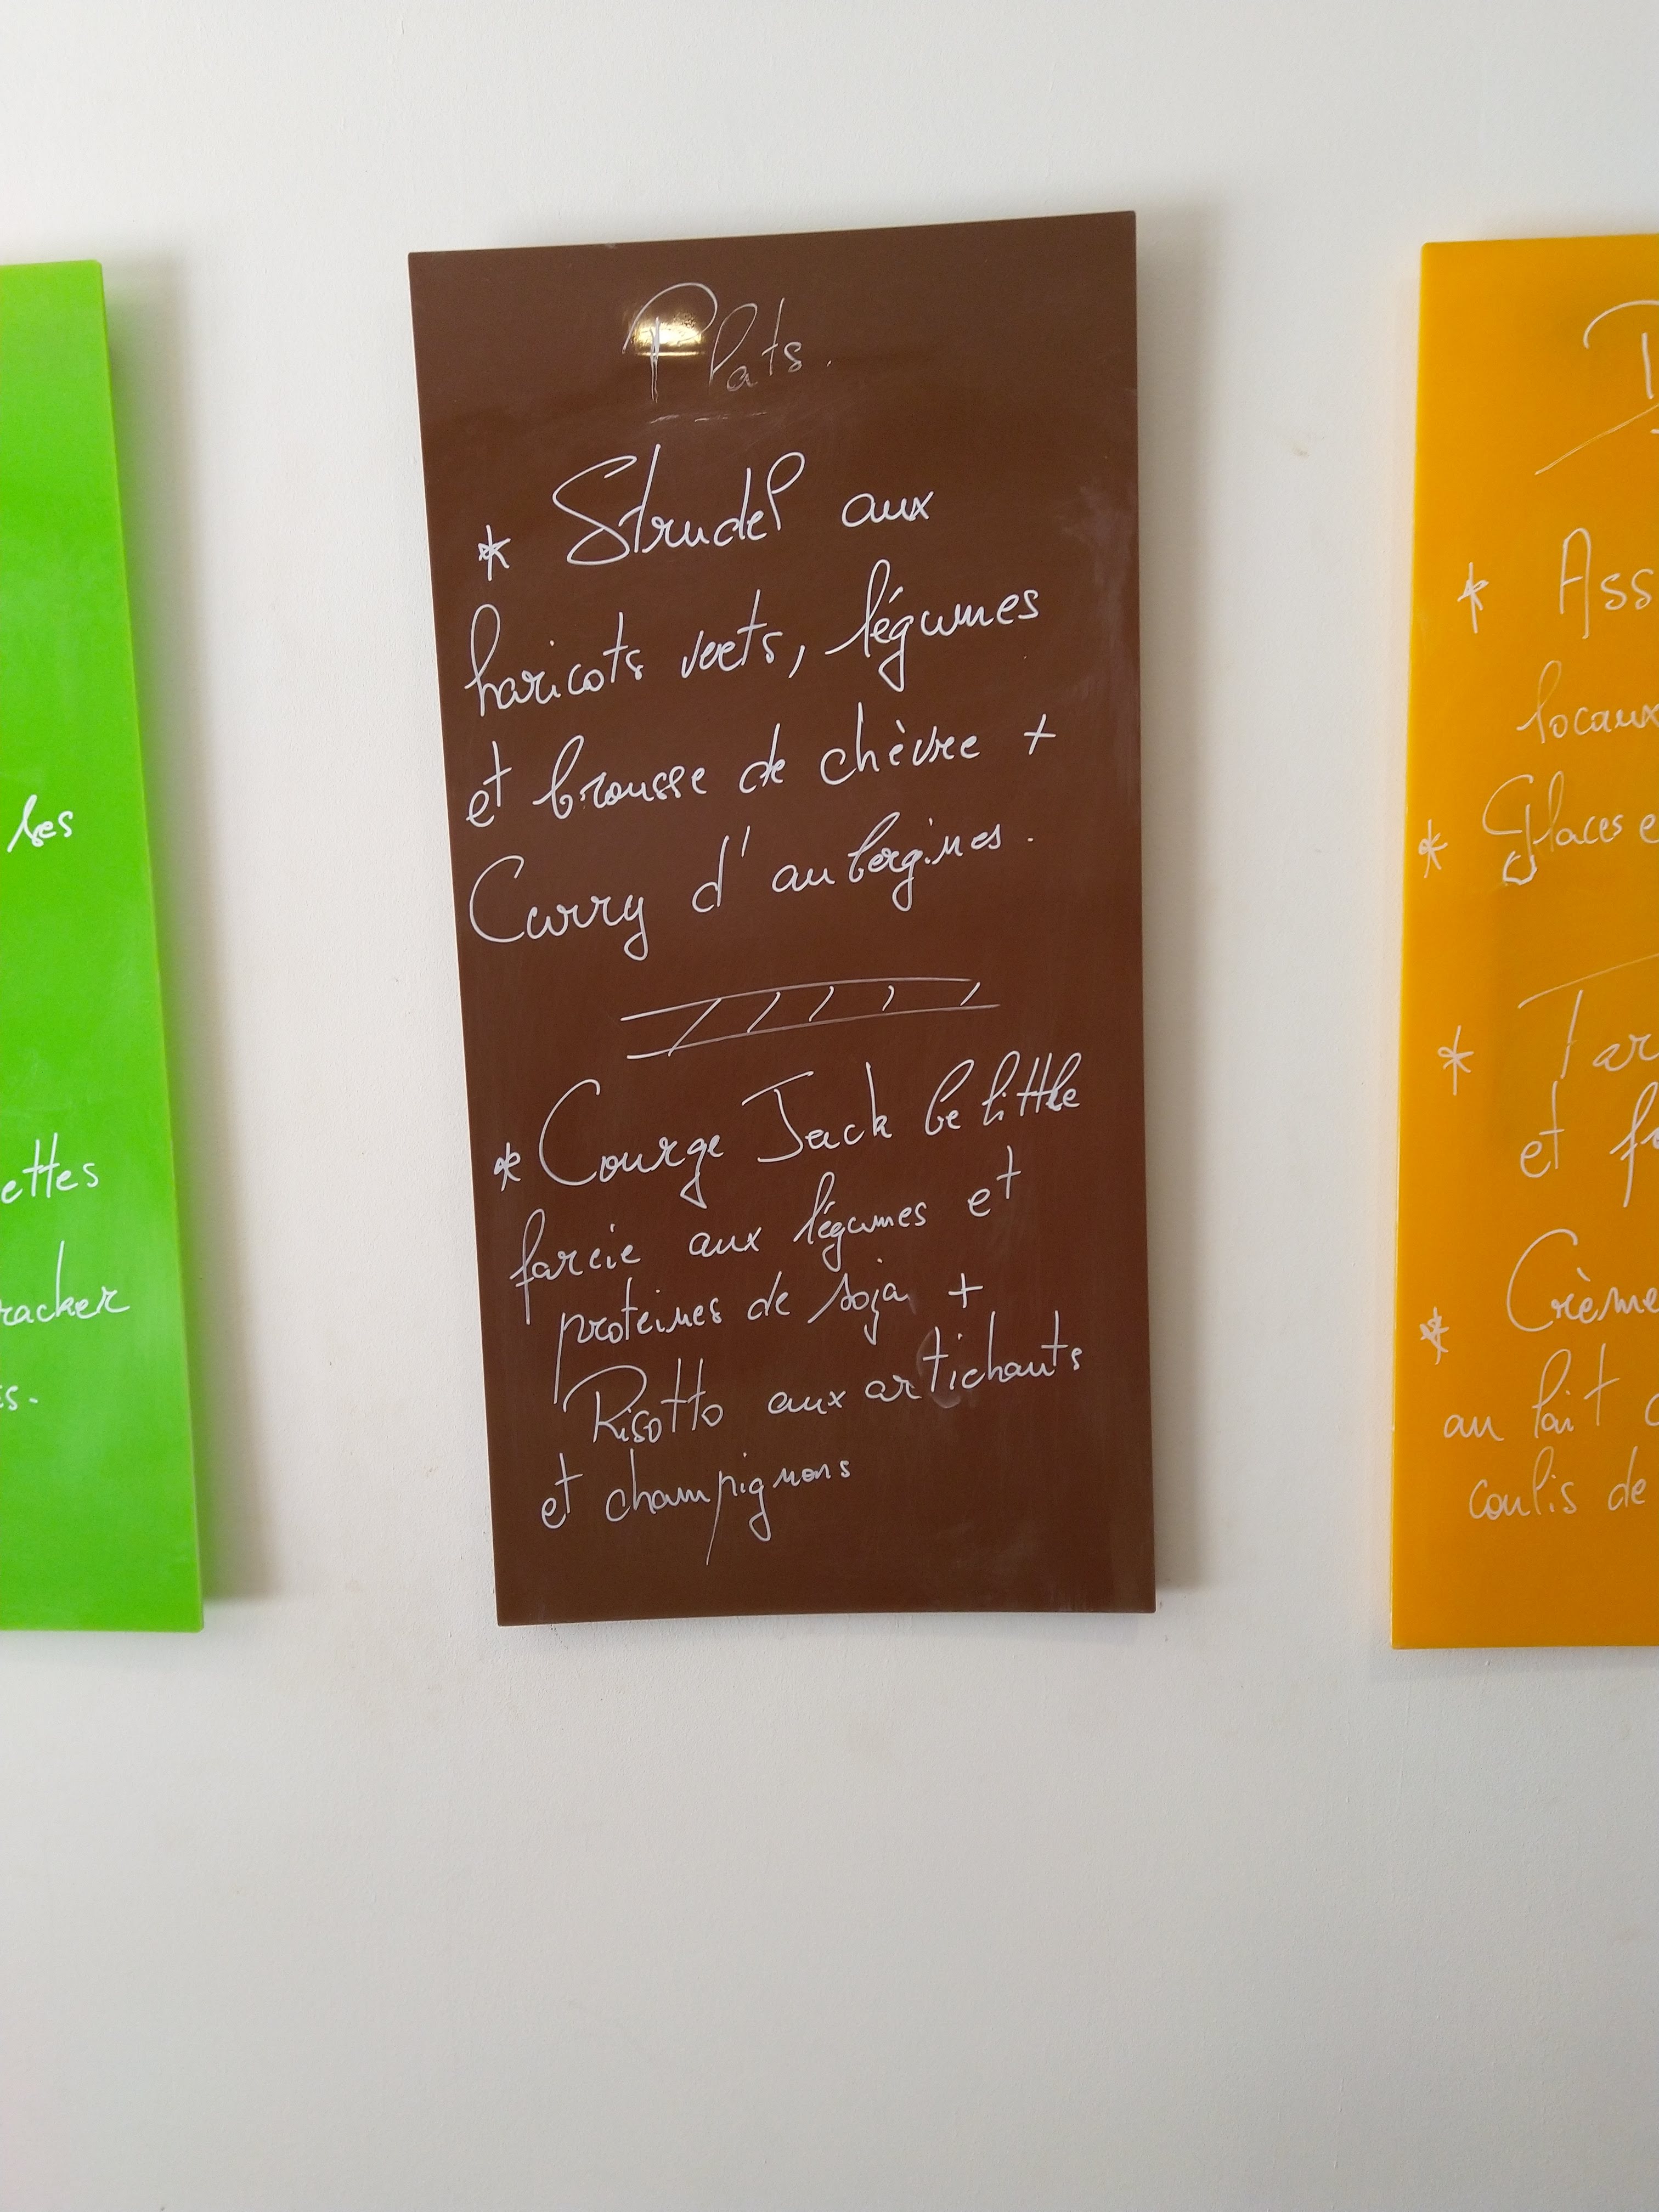 les
ettes
racker
s.
Plats.
* Strudel aux
haricots verts, légumes
et brousse de chèvre +
Curry d'aubergines.
* Courge Jack be little
farcie aux légumes et
protéines de soja +
Risotto aux artichauts
et champignons
* Ass
locaux
* Glaces e
* Tar
et f
* Crème
au lait
coulis de